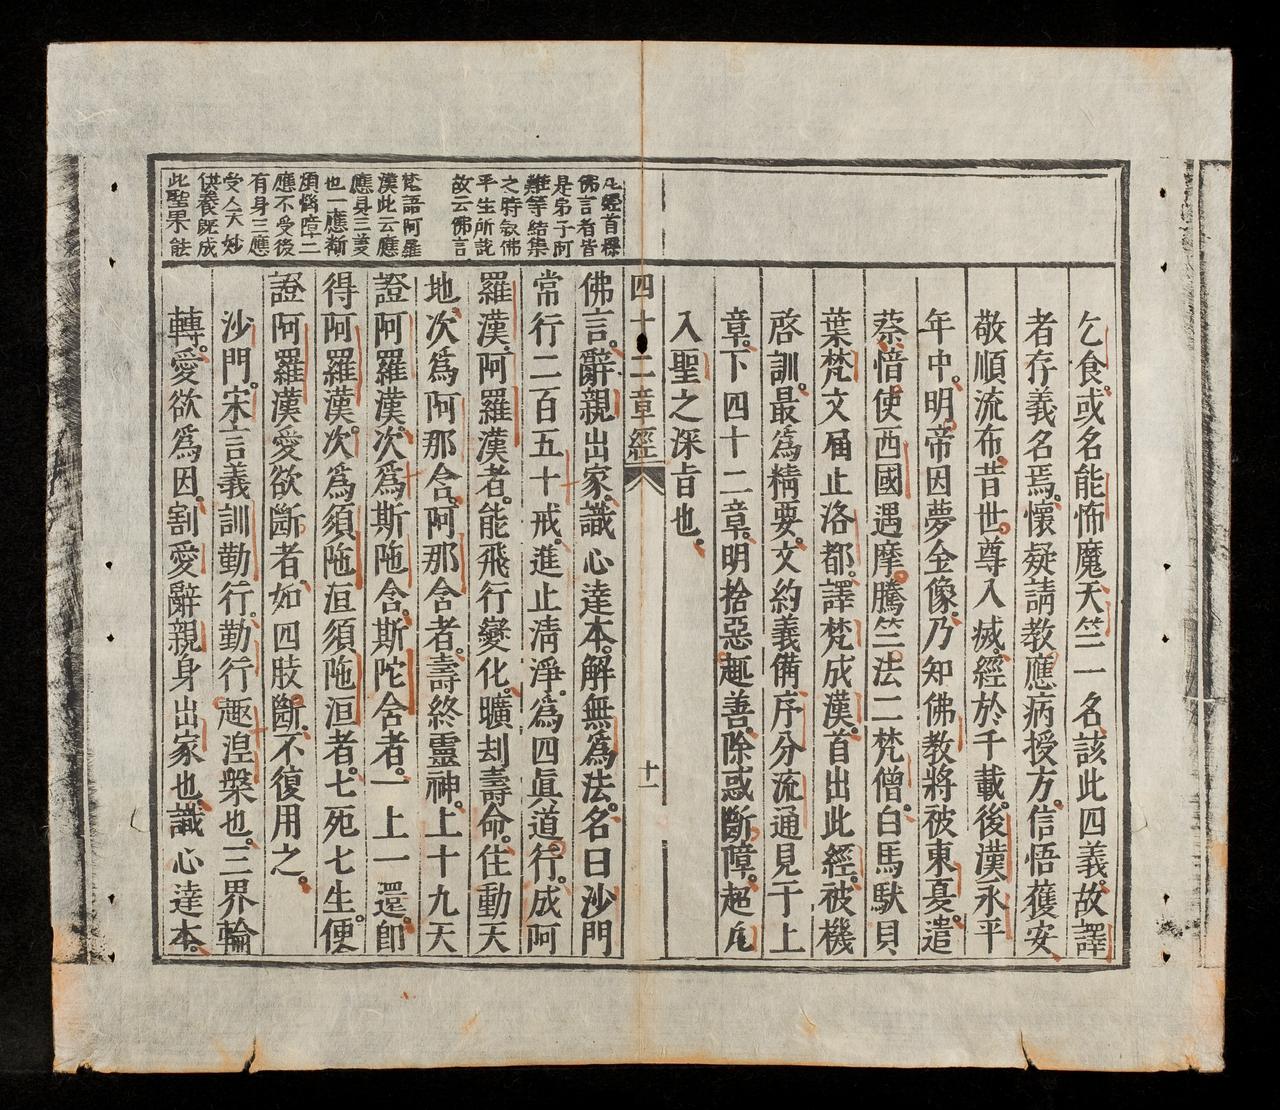 乞食或名能怖魔天竺一名該此四義故譯
者存義名焉懷疑請教應病授方信悟獲安
敬順流布昔世尊入滅經於千載後漢永平
年中明帝因夢金像乃知佛教將被東夏遣
蔡愔使西國遇摩騰竺法二梵僧白馬馱貝
葉梵文届止洛都譯梵成漢首出此經被機
啓訓最爲精要文約義備序分流通見于上
章下四十二章明捨惡趣善除惑斷障超凡
入聖之深旨也
四十二章經
十一
凡經首標
佛言者皆
是弟子阿
難等結集
之時叙佛
平生所說
故云佛言
梵語阿羅
漢此云應
應具三義
也一應斷
煩惱障二
應不受後
有身三應
受人天妙
供養旣成
此聖果能
佛言辭親出家識心達本解無爲法名曰沙門
常行二百五十戒進止清淨爲四眞道行成阿
羅漢阿羅漢者能飛行變化曠刧壽命住動天
地次爲阿那含阿那含者壽終靈神上十九天
證阿羅漢次爲斯陁含斯陀含者一上一還卽
得阿羅漢次爲須陁洹須陁洹者七死七生便
證阿羅漢愛欲斷者如四肢斷不復用之
沙門宋言義訓勤行勤行趣湼槃也三界輪
轉愛欲爲因割愛辭親身出家也識心達本